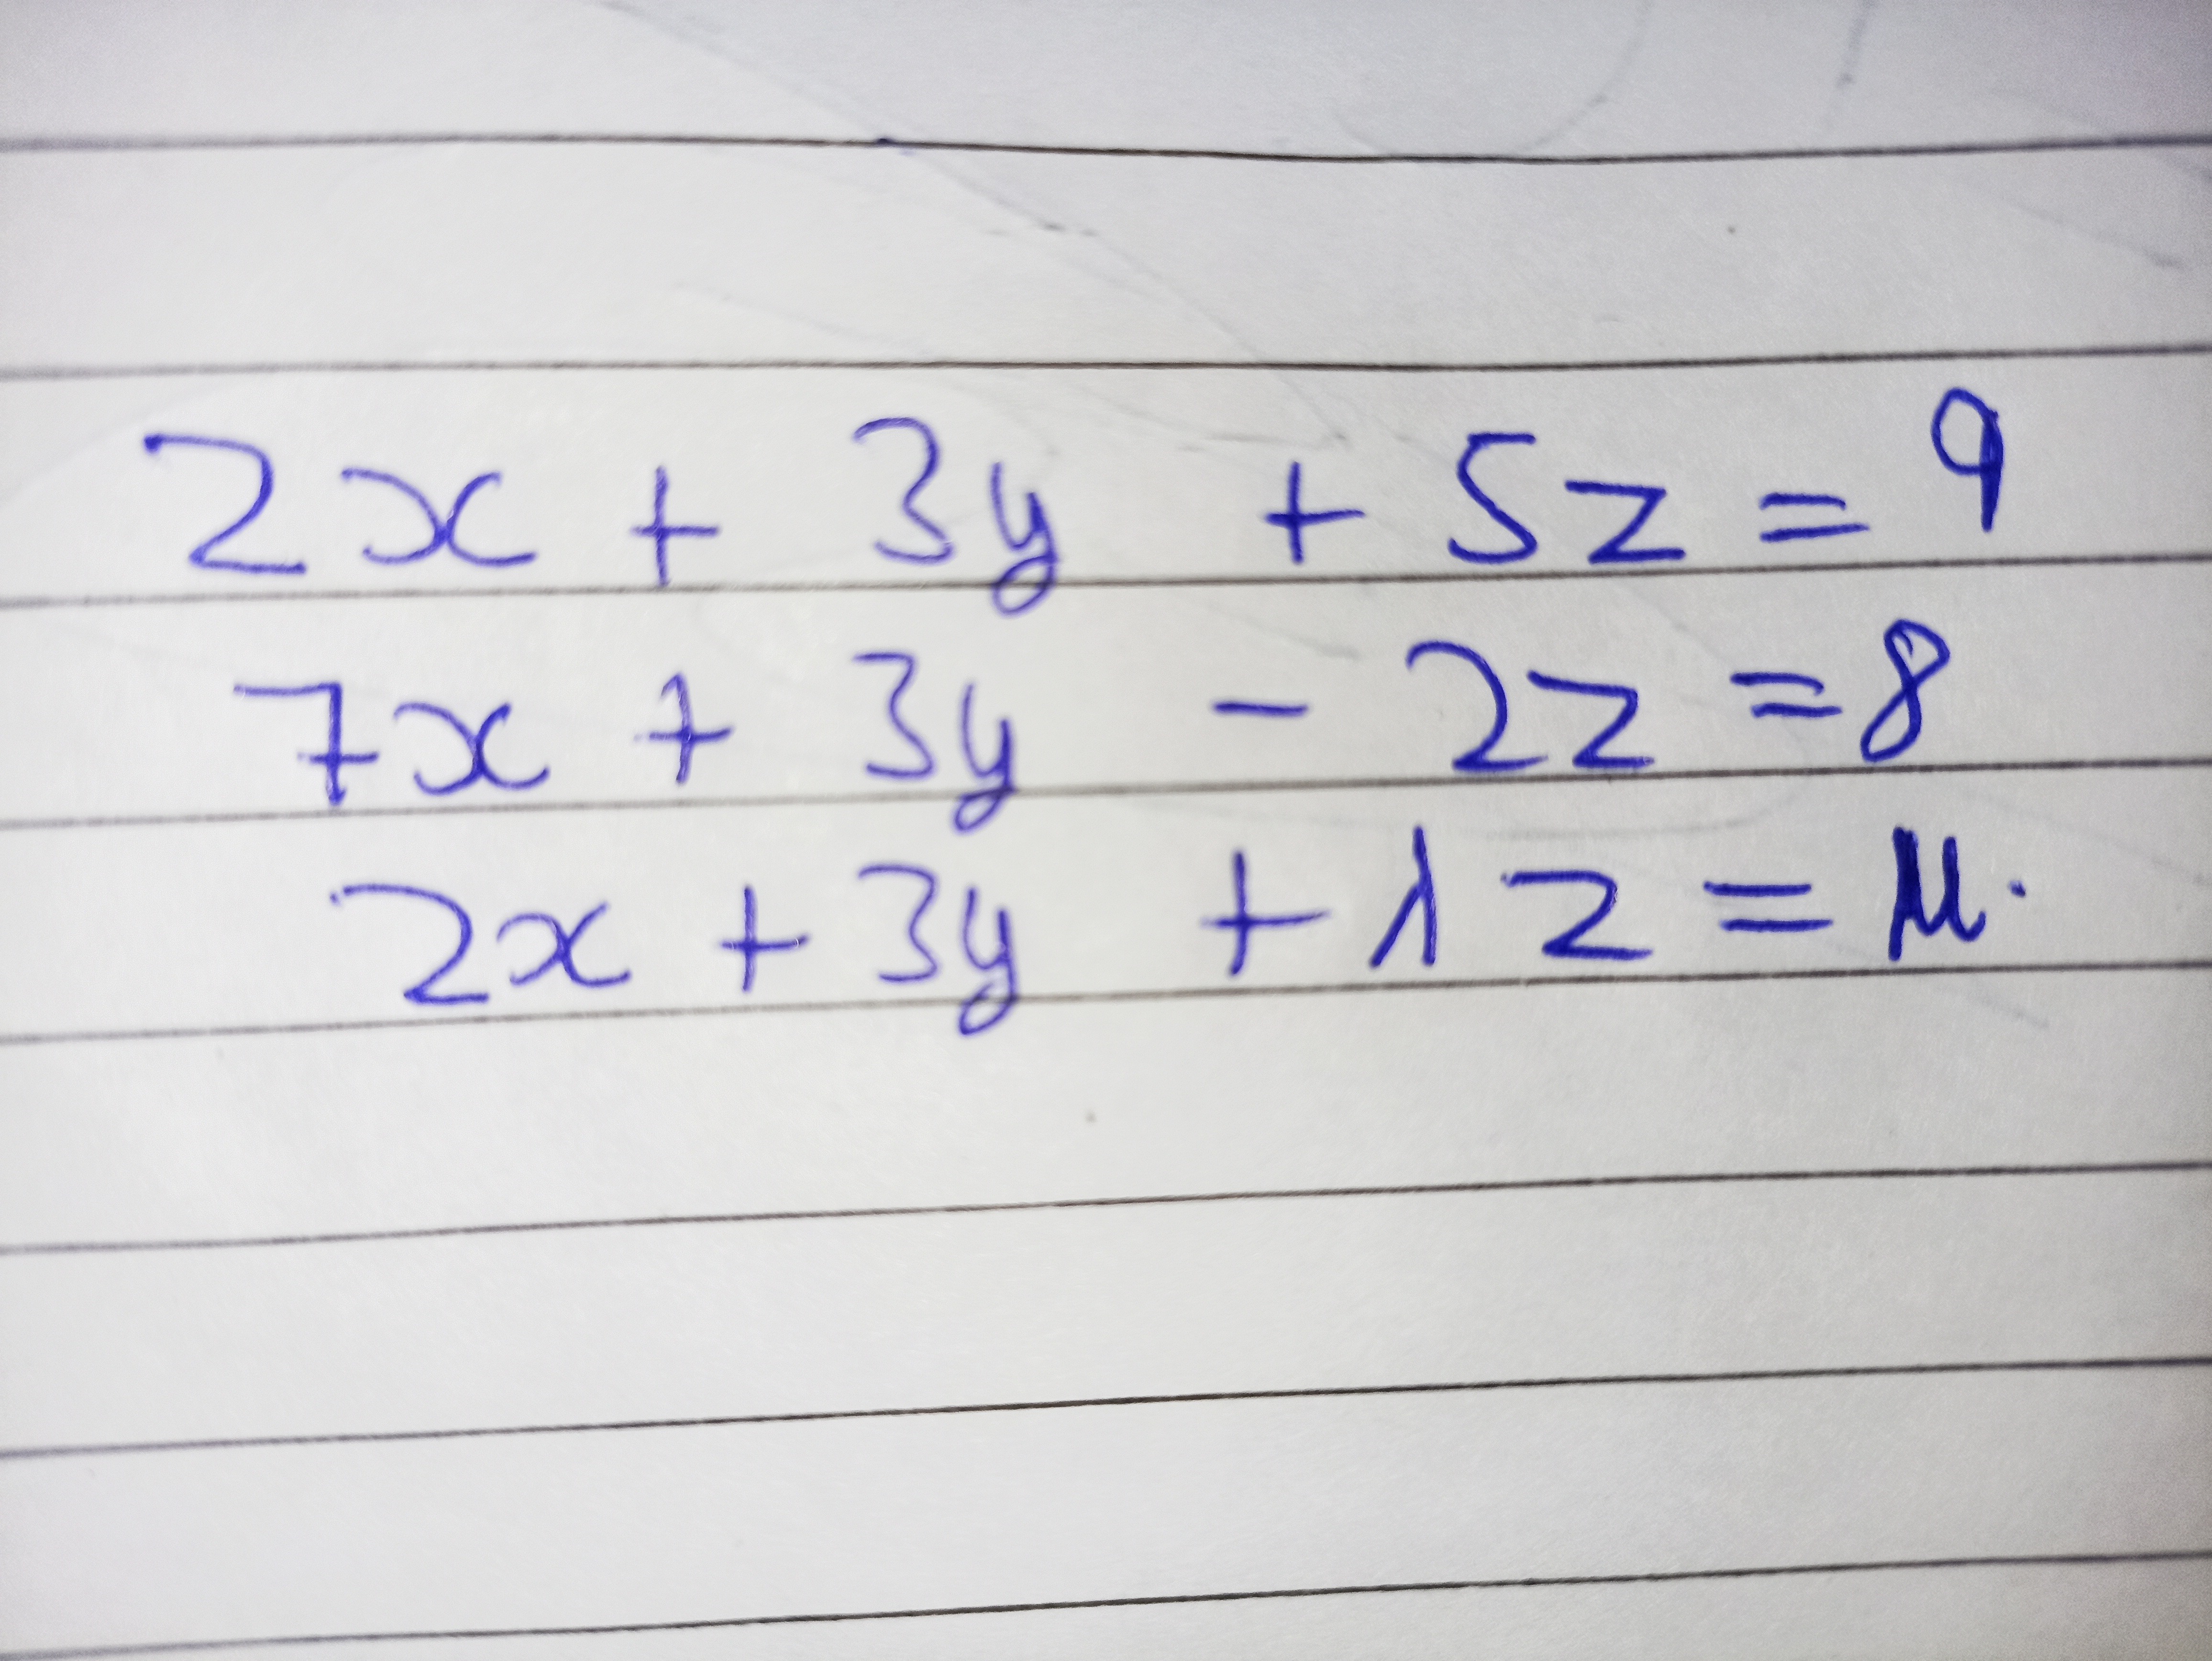 2x + 3y + 5z = 9
7x + 3y - 2z = 8
2x + 3y + λz = μ.